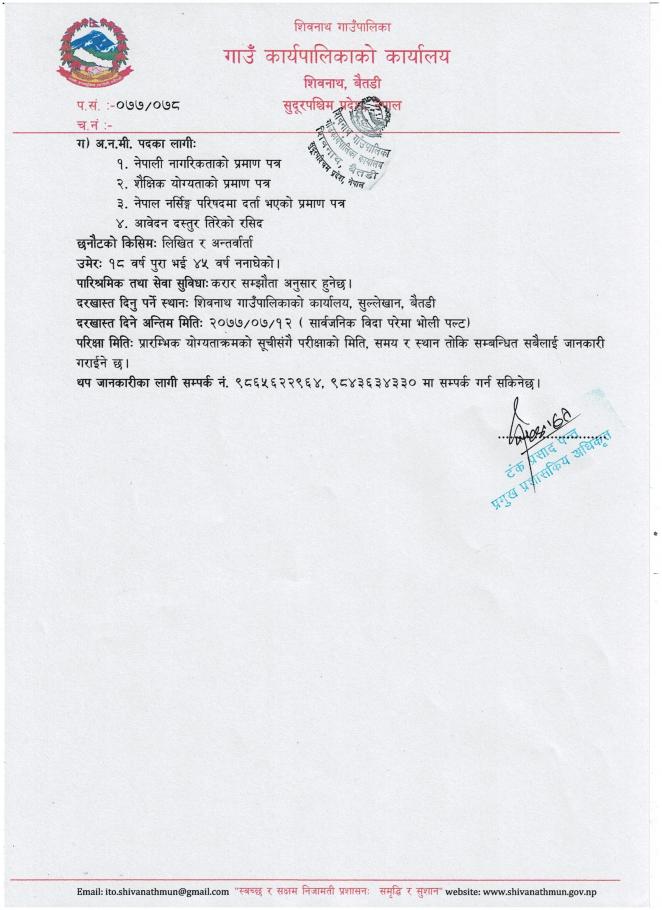 शिवनाथ गाउँपालिका
गाउँ कार्यपालिकाको कार्यालय
शिवनाथ, बैतडी
प.सं. :-०७७/०७८
सुदूरपश्चिम प्रदेश, नेपाल
च.नं :-
शिवनाथ गाउँपालिका
गाउँकार्यपालिकाको कार्यालय
शिवनाथ, बैतडी
सुदूरपश्चिम प्रदेश, नेपाल
ग) अ.न.मी. पदका लागीः
१. नेपाली नागरिकताको प्रमाण पत्र
२. शैक्षिक योग्यताको प्रमाण पत्र
३. नेपाल नर्सिङ्ग परिषदमा दर्ता भएको प्रमाण पत्र
४. आवेदन दस्तुर तिरेको रसिद
छनौटको किसिमः लिखित र अन्तर्वार्ता
उमेरः १८ वर्ष पुरा भई ४५ वर्ष ननाघेको।
पारिश्रमिक तथा सेवा सुविधाः करार सम्झौता अनुसार हुनेछ।
दरखास्त दिनु पर्ने स्थानः शिवनाथ गाउँपालिकाको कार्यालय, सुल्लेखान, बैतडी
दरखास्त दिने अन्तिम मितिः २०७७/०७/१२ ( सार्वजनिक विदा परेमा भोली पल्ट)
परिक्षा मितिः प्रारम्भिक योग्यताक्रमको सूचीसंगै परीक्षाको मिति, समय र स्थान तोकि सम्बन्धित सबैलाई जानकारी
गराईने छ।
थप जानकारीका लागी सम्पर्क नं. ९८६५६२२९६४, ९८४३६३४३३० मा सम्पर्क गर्न सकिनेछ।
टंक प्रसाद पन्त
प्रमुख प्रशासकिय अधिकृत
Email: ito.shivanathmun@gmail.com "स्वच्छ र सक्षम निजामती प्रशासनः समृद्धि र सुशान" website: www.shivanathmun.gov.np